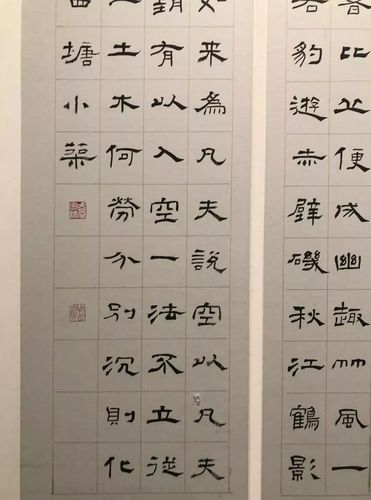 比便成幽趣竹風一
豹遊赤壁磯秋江鶴影
如来為凡夫說空以凡夫
有以入空一法不立從
土木何勞分別沉則化
塘小築